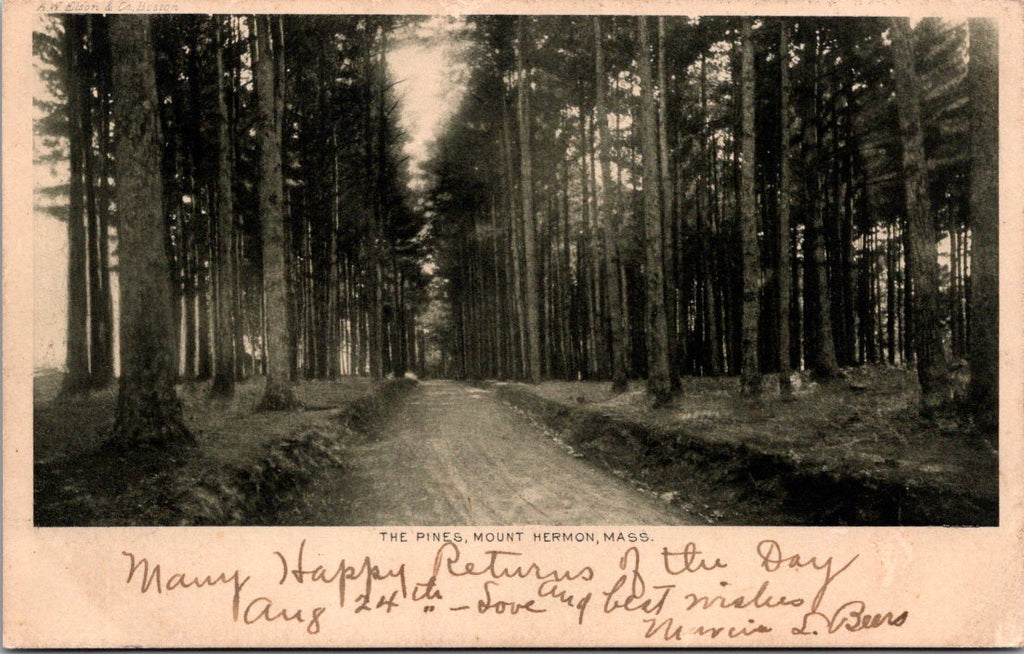 A.W. Elson & Co. Boston
THE PINES, MOUNT HERMON, MASS.
Many Happy Returns of the Day
Aug 24th. - Love and best wishes
Marcia L. Beers